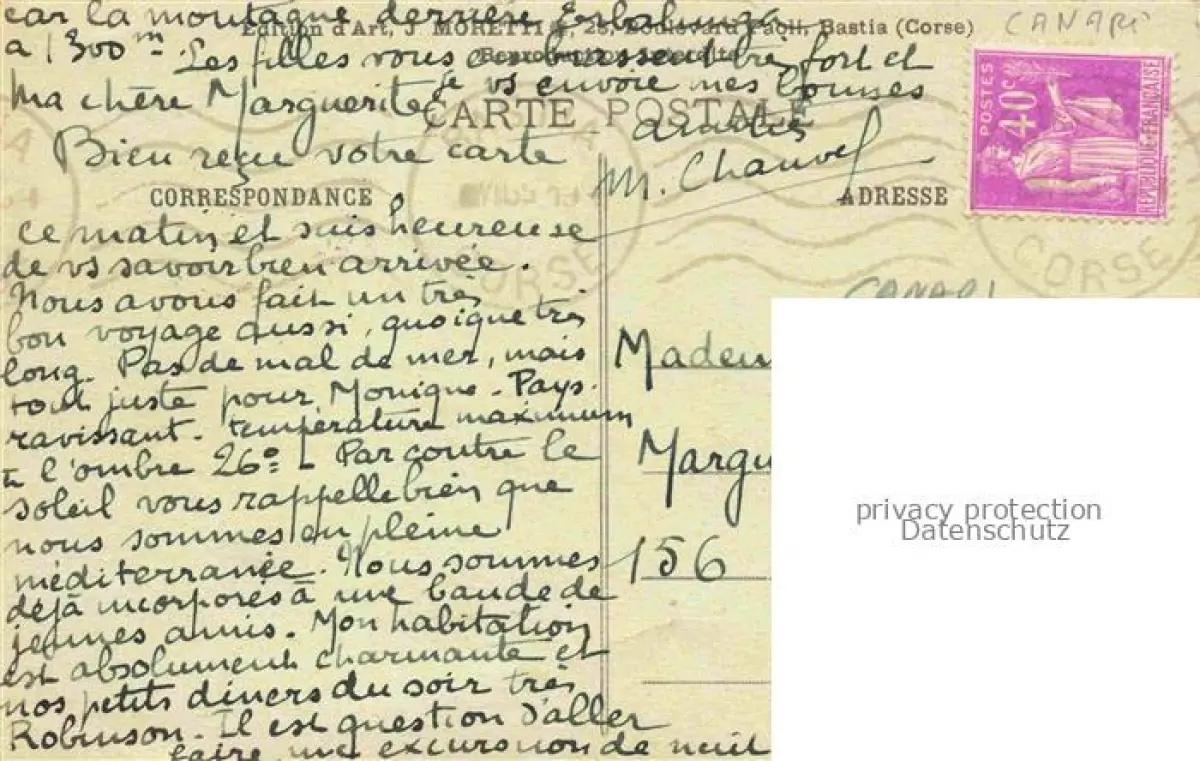 car la montagne derrière Erbalunga
Edition d'Art, J. MORETTI 28, Boulevard Paoli, Bastia (Corse)
CANARI
à 1300m. Les filles vous embrassent très fort et
Reproduction Interdite
je vs envoie mes bonnes
Ma chère Marguerite
CARTE POSTALE
amitiés
M. Chauvel
Bien reçu votre carte
CORRESPONDANCE
ADRESSE
POSTES
40c
REPUBLIQUE FRANÇAISE
CORSE
CORSE
CANARI
ce matin et suis heureuse
de vs savoir bien arrivée.
Nous avons fait un très
bon voyage aussi, quoique très
long. Pas de mal de mer, mais
tout juste pour Monique. Pays
ravissant. température maximum
à l'ombre 26° - Par contre le
soleil vous rappelle bien que
nous sommes en pleine
méditerranée. Nous sommes
déjà incorporés à une bande de
jeunes amis. Mon habitation
est absolument charmante et
nos petits diners du soir très
Robinson. Il est question d'aller
faire une excursion de nuit
Madem
Margu
156
privacy protection
Datenschutz